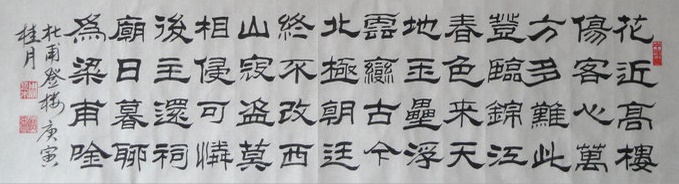 花近高樓
傷客心萬
方多難此
登臨錦江
春色來天
地玉壘浮
雲變古今
北極朝廷
終不改西
山寇盗莫
相侵可憐
後主還祠
廟日暮聊
為梁甫吟
杜甫登楼庚寅
桂月